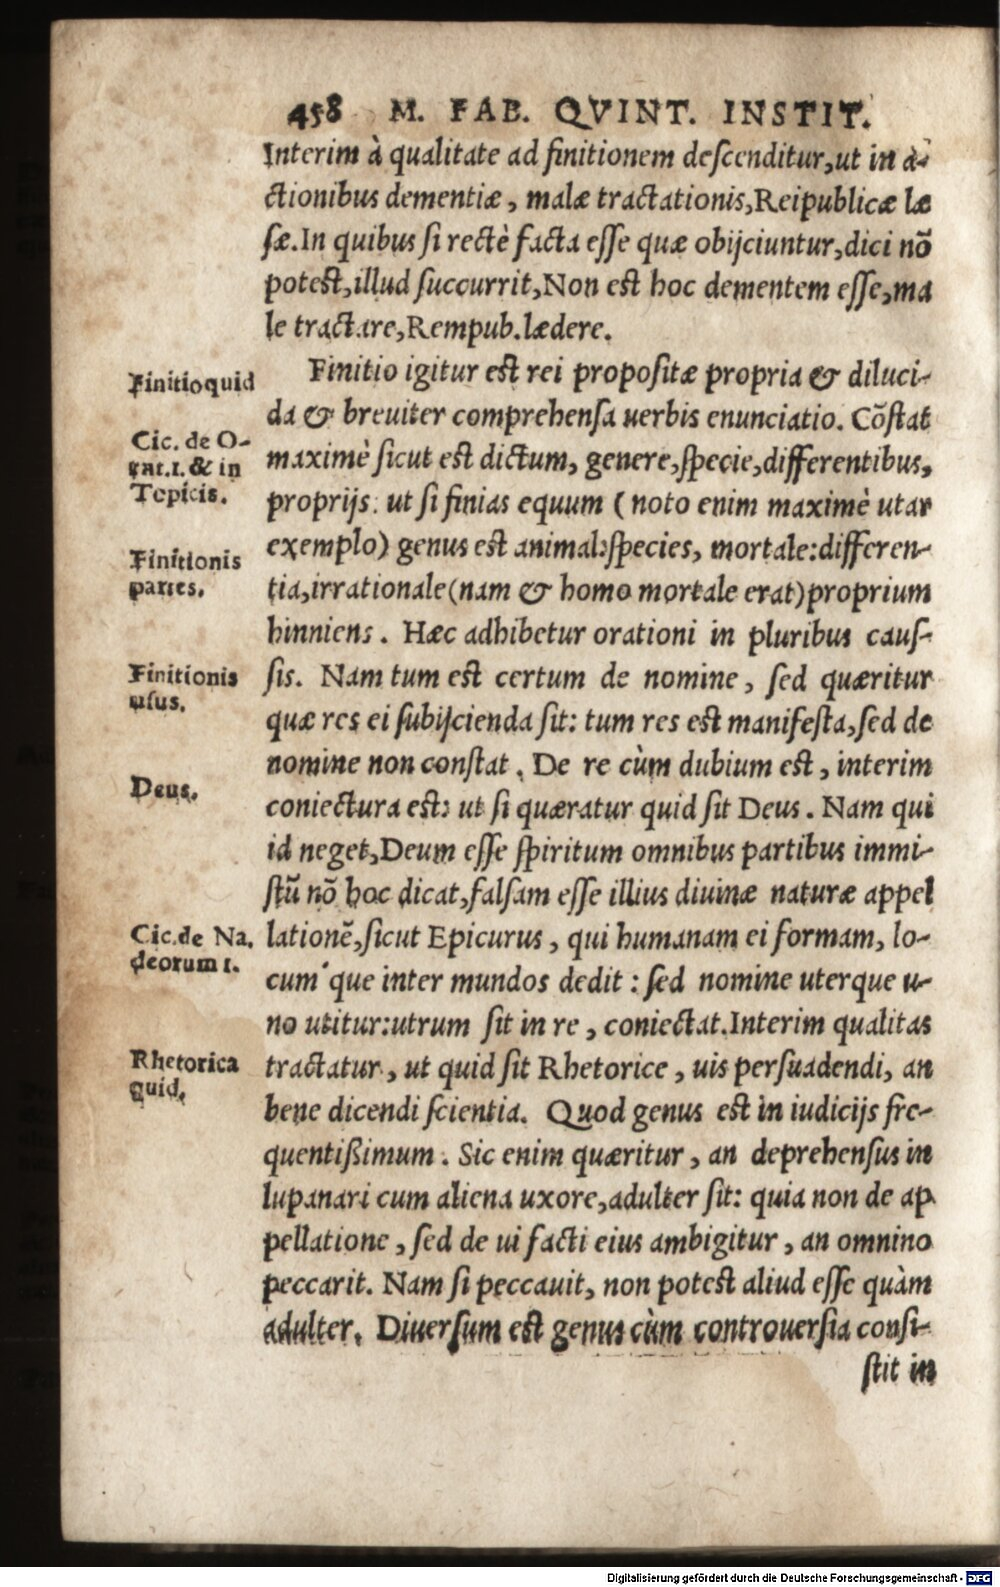 458 M. FAB. QVINT. INSTIT.
Interim à qualitate ad finitionem deſcenditur, ut in a-
ctionibus dementiæ, malæ tractationis, Reipublicæ læ
ſæ. In quibus ſi rectè facta eſſe quæ obijciuntur, dici nõ
poteſt, illud ſuccurrit, Non eſt hoc dementem eſſe, ma
le tractare, Rempub. lædere.
Finitio quid
Finitio igitur eſt rei propoſitæ propria & diluci-
da & breuiter comprehenſa uerbis enunciatio. Cõſtat
Cic. de O-
rat. 1. & in
Topicis.
maximè ſicut eſt dictum, genere, ſpecie, differentibus,
proprijs: ut ſi finias equum (noto enim maximè utar
exemplo) genus eſt animal: ſpecies, mortale: differen-
Finitionis
partes.
tia, irrationale (nam & homo mortale erat) proprium
hinniens. Hæc adhibetur orationi in pluribus cauſ-
Finitionis
uſus.
ſis. Nam tum eſt certum de nomine, ſed quæritur
quæ res ei ſubijcienda ſit: tum res eſt manifeſta, ſed de
nomine non conſtat. De re cùm dubium eſt, interim
Deus.
coniectura eſt: ut ſi quæratur quid ſit Deus. Nam qui
id neget, Deum eſſe ſpiritum omnibus partibus immi-
ſtũ nõ hoc dicat, falſam eſſe illius diuinæ naturæ appel
Cic. de Na.
deorum 1.
lationẽ, ſicut Epicurus, qui humanam ei formam, lo-
cum que inter mundos dedit: ſed nomine uterque u-
no utitur: utrum ſit in re, coniectat. Interim qualitas
Rhetorica
quid.
tractatur, ut quid ſit Rhetorice, uis perſuadendi, an
bene dicendi ſcientia. Quod genus eſt in iudicijs fre-
quentißimum. Sic enim quæritur, an deprehenſus in
lupanari cum aliena uxore, adulter ſit: quia non de ap
pellatione, ſed de ui facti eius ambigitur, an omnino
peccarit. Nam ſi peccauit, non poteſt aliud eſſe quàm
adulter. Diuerſum eſt genus cùm controuerſia conſi-
ſtit in
Digitalisierung gefördert durch die Deutsche Forschungsgemeinschaft - DFG